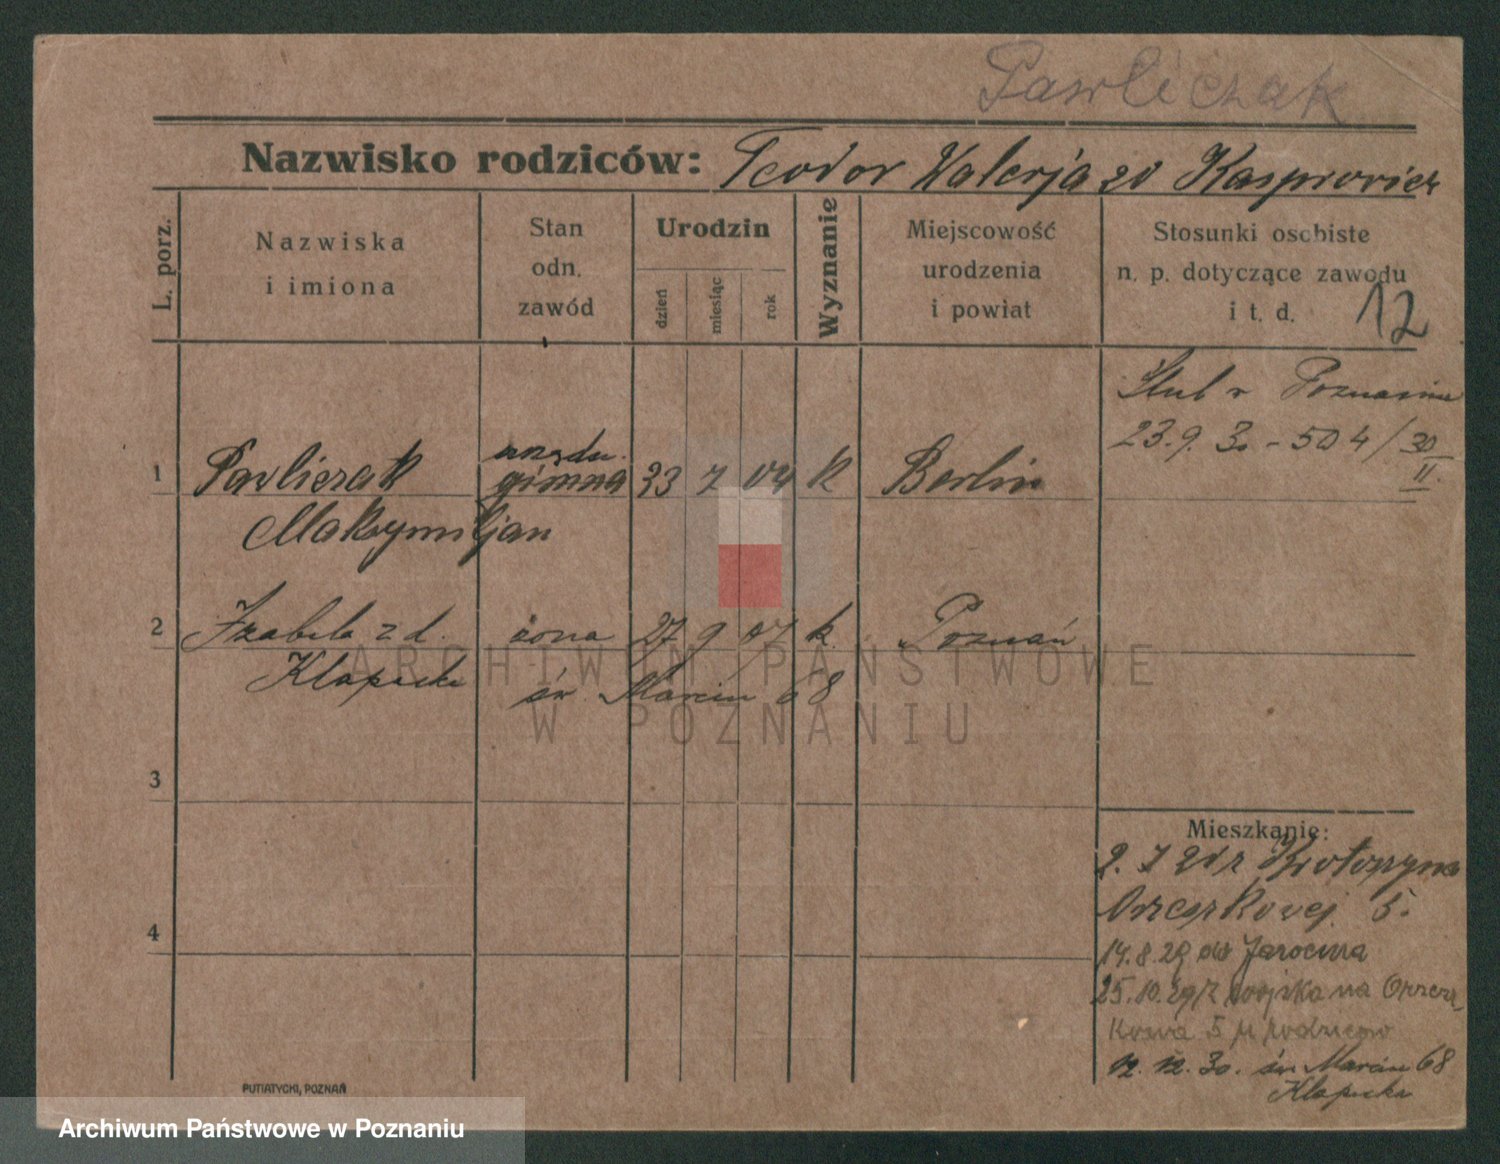 Pawliczak
Nazwisko rodziców: Teodor Walerja zd Kasprowicz
L. porz.
Nazwiska
i imiona
Stan
odn.
zawód
Urodzin
dzień
miesiąc
rok
Wyznanie
Miejscowość
urodzenia
i powiat
Stosunki osobiste
n. p. dotyczące zawodu
i t. d.
12
Ślub w Poznaniu
23.9.30 - 504/30
II.
1 Pawliczak urzędn. 7 04 k Berlin
Maksymiljan
2 Izabela z d. żona 27 9 07 k. Poznań
Klapecka św. Marcin 68
3
4
Mieszkanie:
2. 7 21 z Krotoszyna
Orzeszkowej 5.
14.8.29 do Jarocina
25.10.29 z wojska na Orzesz
kowa 5 u rodziców
12. 12. 30. św. Marcin 68
Klapecka
PUTIATYCKI, POZNAŃ
ARCHIWUM PAŃSTWOWE
W POZNANIU
Archiwum Państwowe w Poznaniu